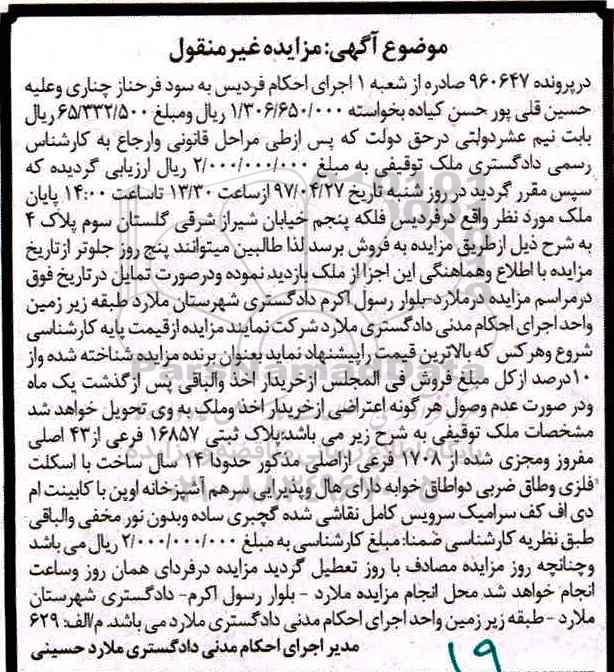 موضوع آگهی: مزایده غیر منقول
در پرونده ۹۶۰۶۴۷ صادره از شعبه ۱ اجرای احکام فردیس به سود فرحناز چناری وعلیه
حسین قلی پور حسن کیاده بخواسته ۱/۳۰۶/۶۵۰/۰۰۰ ریال ومبلغ ۶۵/۳۳۲/۵۰۰ ریال
بابت نیم عشردولتی درحق دولت که پس ازطی مراحل قانونی وارجاع به کارشناس
رسمی دادگستری ملک توقیفی به مبلغ ۲/۰۰۰/۰۰۰/۰۰۰ ریال ارزیابی گردیده که
سپس مقرر گردید در روز شنبه تاریخ ۹۷/۰۴/۲۷ ازساعت ۱۳/۳۰ تاساعت ۱۴:۰۰ پایان
ملک مورد نظر واقع درفردیس فلکه پنجم خیابان شیراز شرقی گلستان سوم پلاک ۴
به شرح ذیل ازطریق مزایده به فروش برسد لذا طالبین میتوانند پنج روز جلوتر ازتاریخ
مزایده با اطلاع وهماهنگی این اجرا از ملک بازدید نموده ودرصورت تمایل در تاریخ فوق
درمراسم مزایده درملارد-بلوار رسول اکرم دادگستری شهرستان ملارد طبقه زیر زمین
واحد اجرای احکام مدنی دادگستری ملارد شرکت نمایند مزایده ازقیمت پایه کارشناسی
شروع وهر کس که بالاترین قیمت راپیشنهاد نماید بعنوان برنده مزایده شناخته شده واز
۱۰درصد از کل مبلغ فروش فی المجلس ازخریدار اخذ والباقی پس از گذشت یک ماه
ودر صورت عدم وصول هر گونه اعتراضی از خریدار اخذ وملک به وی تحویل خواهد شد
مشخصات ملک توقیفی به شرح زیر می باشد:پلاک ثبتی ۱۶۸۵۷ فرعی از ۴۳ اصلی
مفروز ومجزی شده از ۱۷۰۸ فرعی ازاصلی مذکور حدودا ۱۴ سال ساخت با اسکلت
فلزی وطاق ضربی دواطاق خوابه دارای هال وپذیرایی سرهم آشپزخانه اوپن با کابینت ام
دی اف کف سرامیک سرویس کامل نقاشی شده گچبری ساده وبدون نور مخفی والباقی
طبق نظریه کارشناسی ضمنا: مبلغ کارشناسی به مبلغ ۲/۰۰۰/۰۰۰/۰۰۰ ریال می باشد
وچنانچه روز مزایده مصادف با روز تعطیل گردید مزایده درفردای همان روز وساعت
انجام خواهد شد محل انجام مزایده ملارد - بلوار رسول اکرم- دادگستری شهرستان
ملارد - طبقه زیر زمین واحد اجرای احکام مدنی دادگستری ملارد می باشد. م/الف: ۶۲۹
مدیر اجرای احکام مدنی دادگستری ملارد حسینی
۱۹
ParsNamadData